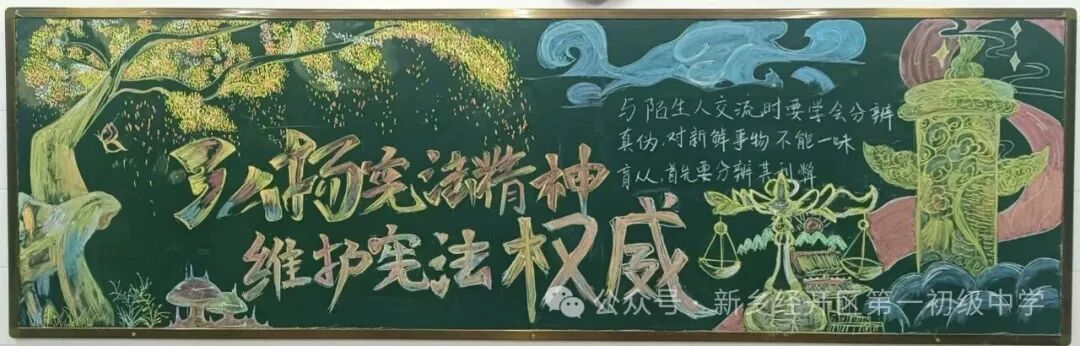 弘扬宪法精神
维护宪法权威
与陌生人交流时要学会分辨
真伪.对新鲜事物不能一味
盲从.首先要分辨其利弊
公众号·新乡经开区第一初级中学